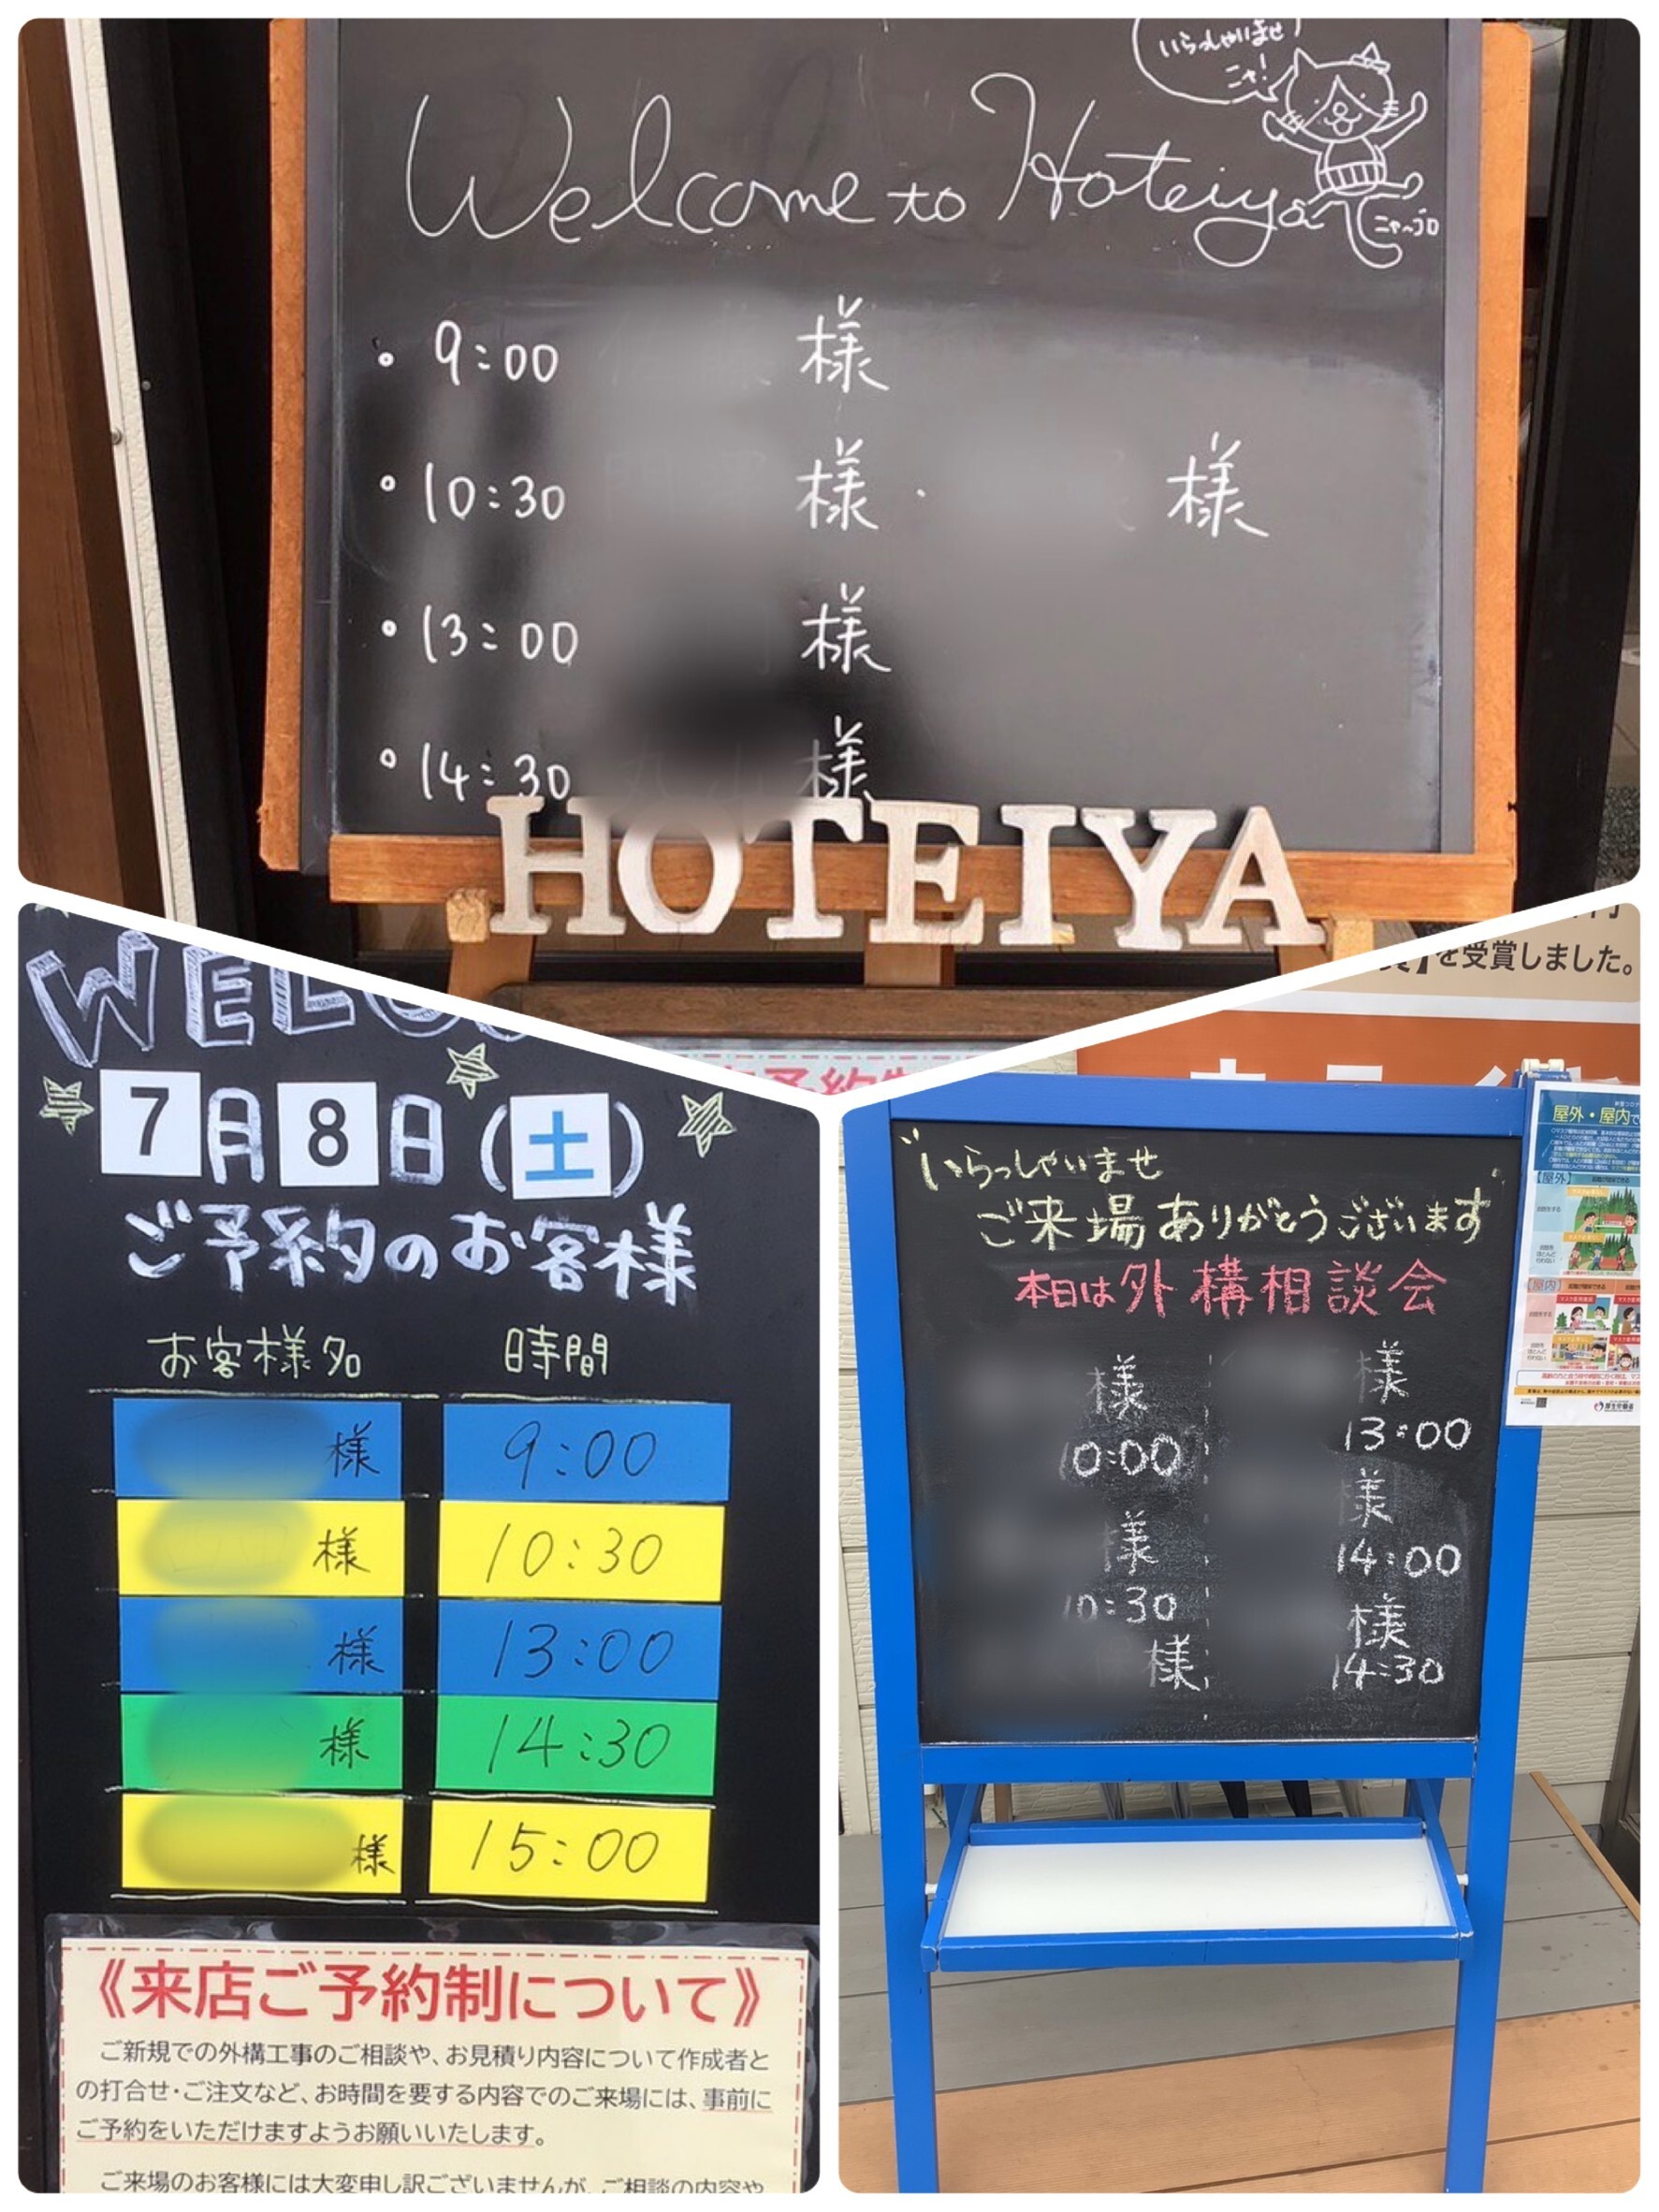 いらっしゃいませ
ニャ!
Welcome to Hoteiya
ニャ〜ゴロ
・9:00 様
・10:30 様・様
・13:00 様
・14:30 様
HOTEIYA
WELCO
7月8日(土)
ご予約のお客様
お客様名 時間
様 9:00
様 10:30
様 13:00
様 14:30
様 15:00
《来店ご予約制について》
ご新規での外構工事のご相談や、お見積り内容について作成者と
の打合せ・ご注文など、お時間を要する内容でのご来場には、事前に
ご予約をいただけますようお願いいたします。
ご来場のお客様には大変申し訳ございませんが、ご相談の内容や
】を受賞しました。
いらっしゃいませ
ご来場ありがとうございます
本日は外構相談会
様 様
10:00 13:00
様 様
10:30 14:00
様 様
14:30
屋外・屋内で
【屋外】
【屋内】
厚生労働省